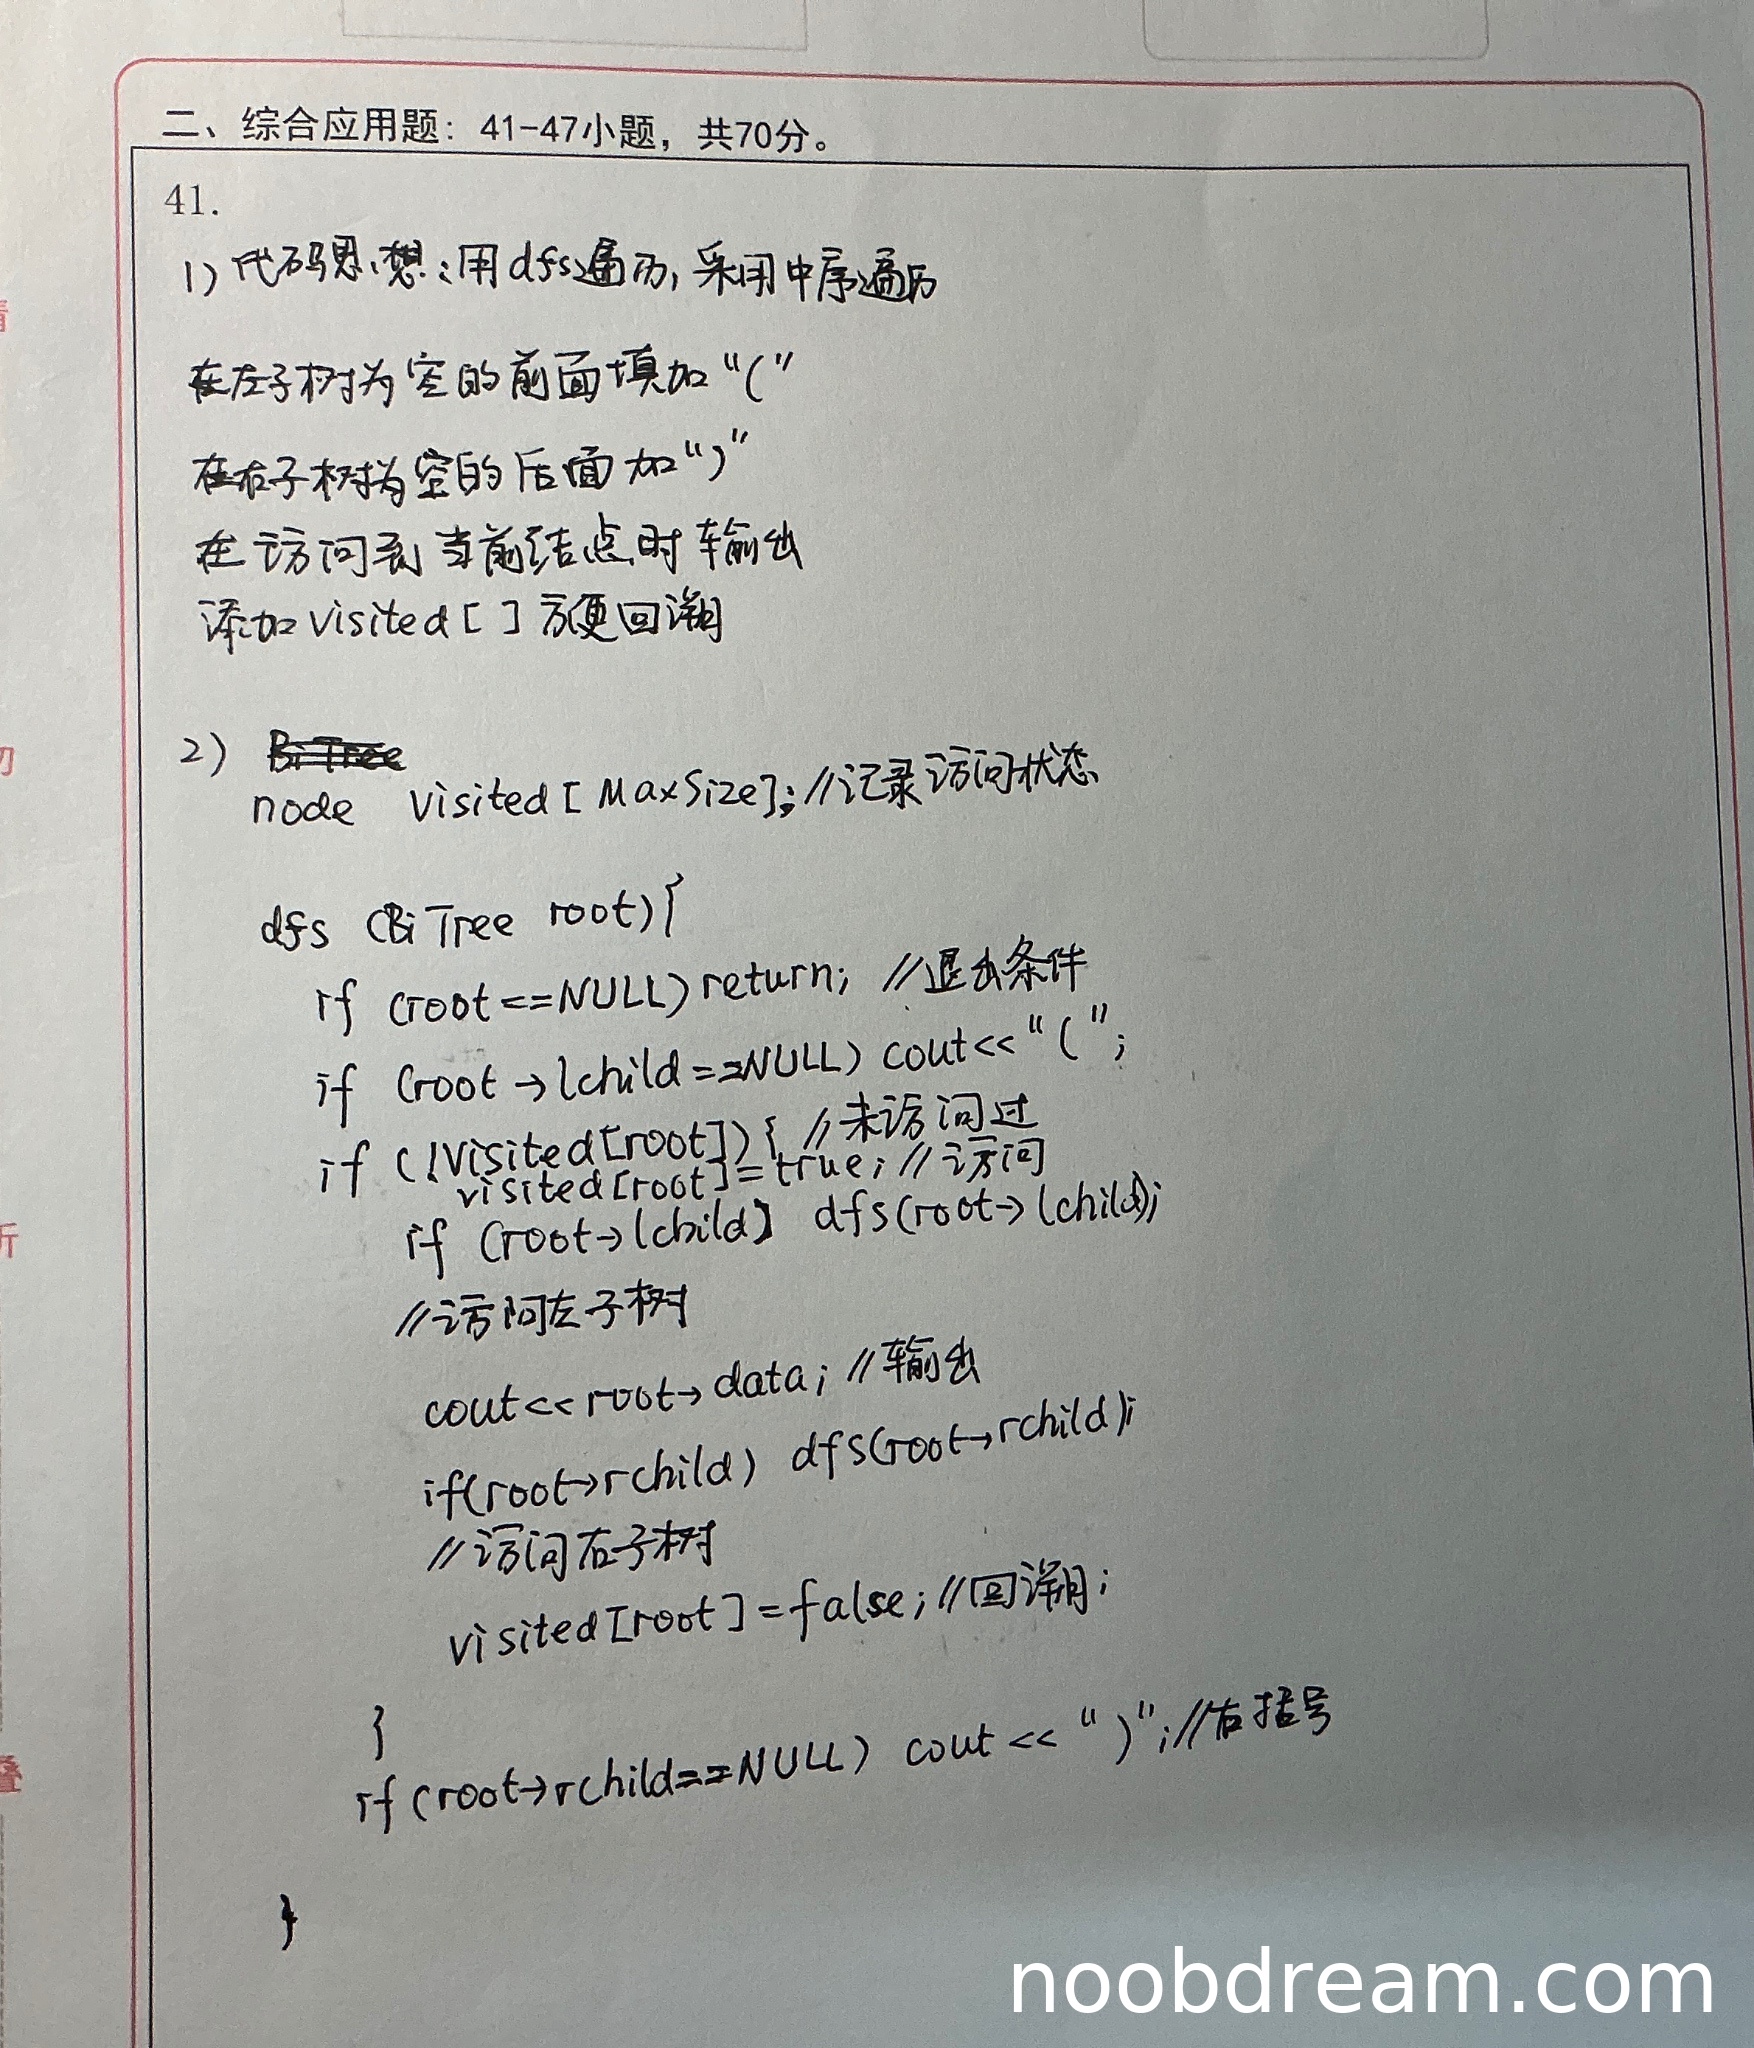 二、综合应用题：41-47小题，共70分。
41.
1) 代码思想：用dfs遍历，采用中序遍历
在左子树为空的前面填加“(”
在右子树为空的后面加“)”
在访问到当前结点时输出
添加visited[ ]方便回溯
2) BiTree
node visited[MaxSize]; //记录访问状态
dfs (BiTree root){
if (root==NULL) return; //退出条件
if (root→lchild==NULL) cout<<“(”;
if (!visited[root]){ //未访问过
visited[root]=true; //访问
if (root→lchild) dfs(root→lchild);
//访问左子树
cout<<root→data; //输出
if(root→rchild) dfs(root→rchild);
//访问右子树
visited[root]=false; //回溯;
}
if(root→rchild==NULL) cout<<“)”; //右括号
}
noobdream.com